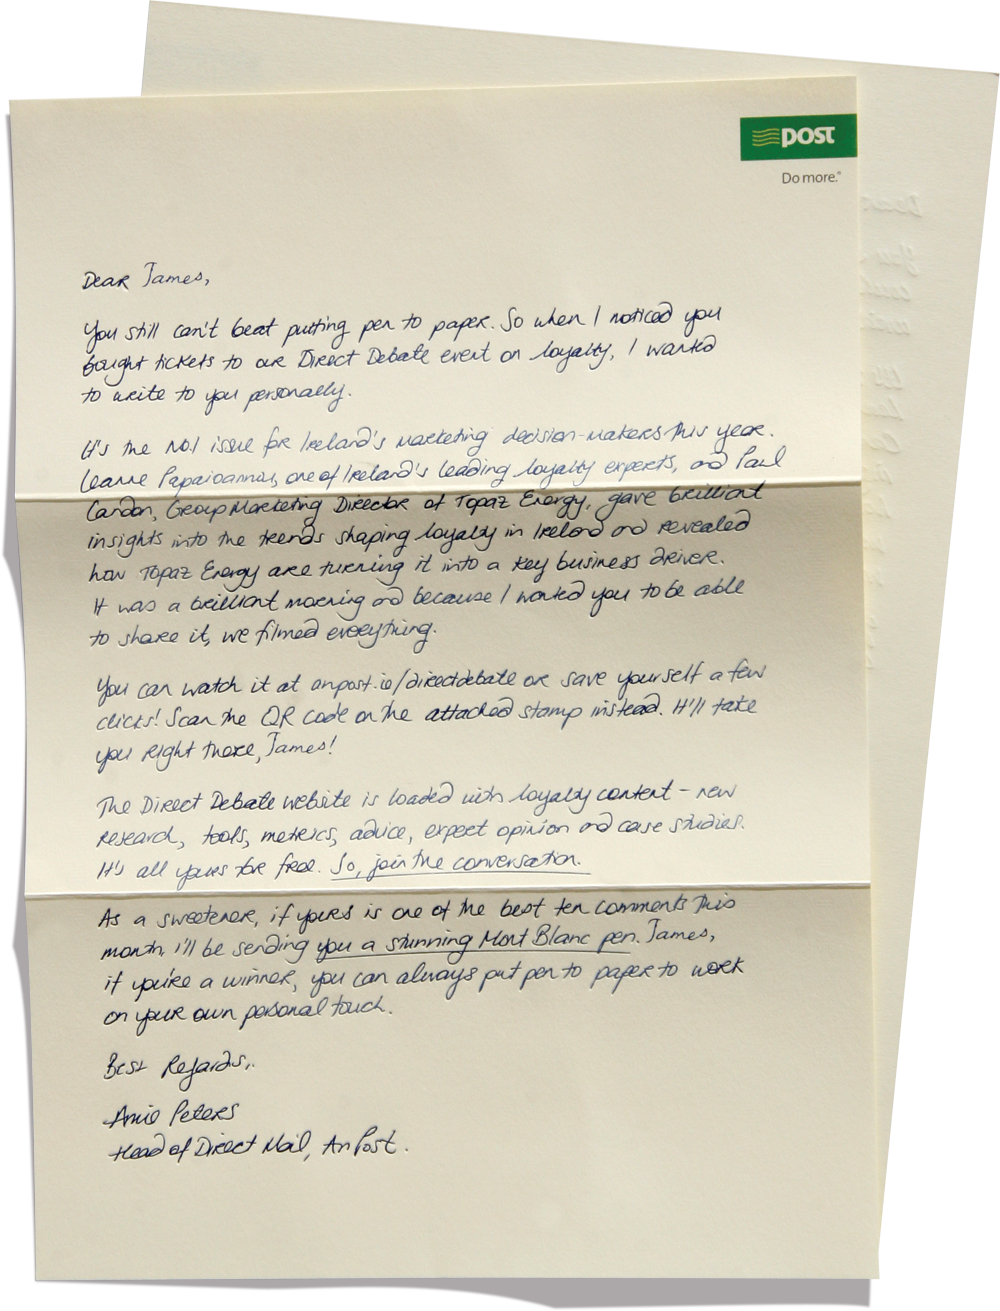 post
Do more.®
Dear James,
You still can't beat putting pen to paper. So when I noticed you
bought tickets to our Direct Debate event on loyalty, I wanted
to write to you personally.
It's the No.1 issue for Ireland's marketing decision-makers this year.
Leanne Papaioannou, one of Ireland's leading loyalty experts, and Paul
Candon, Group Marketing Director of Topaz Energy, gave brilliant
insights into the trends shaping loyalty in Ireland and revealed
how Topaz Energy are turning it into a key business driver.
It was a brilliant morning and because I wanted you to be able
to share it, we filmed everything.
You can watch it at anpost.ie/directdebate or save yourself a few
clicks! Scan the QR code on the attached stamp instead. It'll take
you right there, James!
The Direct Debate website is loaded with loyalty content - new
research, tools, metrics, advice, expert opinion and case studies.
It's all yours for free. So, join the conversation.
As a sweetener, if yours is one of the best ten comments this
month, I'll be sending you a stunning Mont Blanc pen. James,
if you're a winner, you can always put pen to paper to work
on your own personal touch.
Best Regards,
Peters
Head of Direct Mail, An Post.